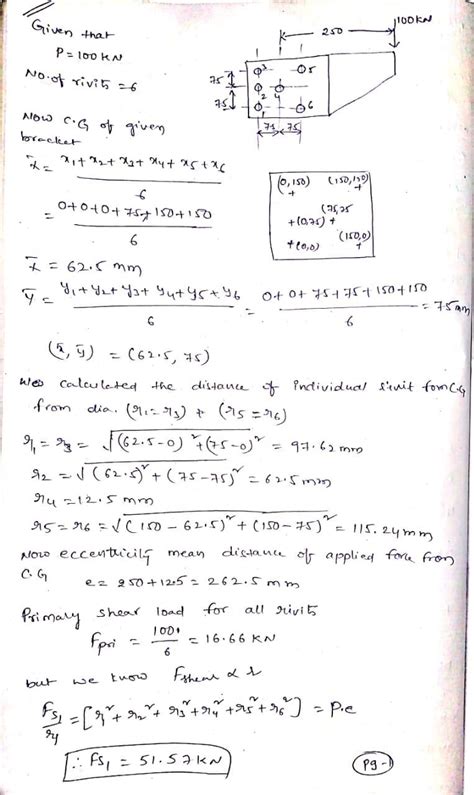 Given that
P = 100 KN
No. of rivits = 6
100KN
250
75
75
3
5
2
4
1
6
75
75
Now C.G of given
bracket
x̄ = x₁ + x₂ + x₃ + x₄ + x₅ + x₆ / 6
= 0+0+0+75+150+150 / 6
(0,150) (150,150)
+ +
(75,75
+(0,75) +
(150,0)
+(0,0) +
x̄ = 62.5 mm
ȳ = y₁ + y₂ + y₃ + y₄ + y₅ + y₆ / 6 = 0+0+75+75+150+150 / 6 = 75mm
(x̄, ȳ) = (62.5, 75)
calculated the distance of individual rivit fom C.G
from dia. (r₁ = r₃) + (r₅ = r₆)
r₁ = r₃ = √(62.5-0)² + (75-0)² = 97.62 mm
r₂ = √(62.5)² + (75-75)² = 62.5 mm
r₄ = 12.5 mm
r₅ = r₆ = √(150-62.5)² + (150-75)² = 115.24 mm
Now eccentricity mean distance of applied force from
C.G
e = 250+12.5 = 262.5 mm
Primary shear load for all rivits
Fpri = 100 / 6 = 16.66 KN
but we know Fshear α r
Fs₁ / r₁ = [r₁² + r₂² + r₃² + r₄² + r₅² + r₆²] = P.e
∴ Fs₁ = 51.57KN
Pg-1